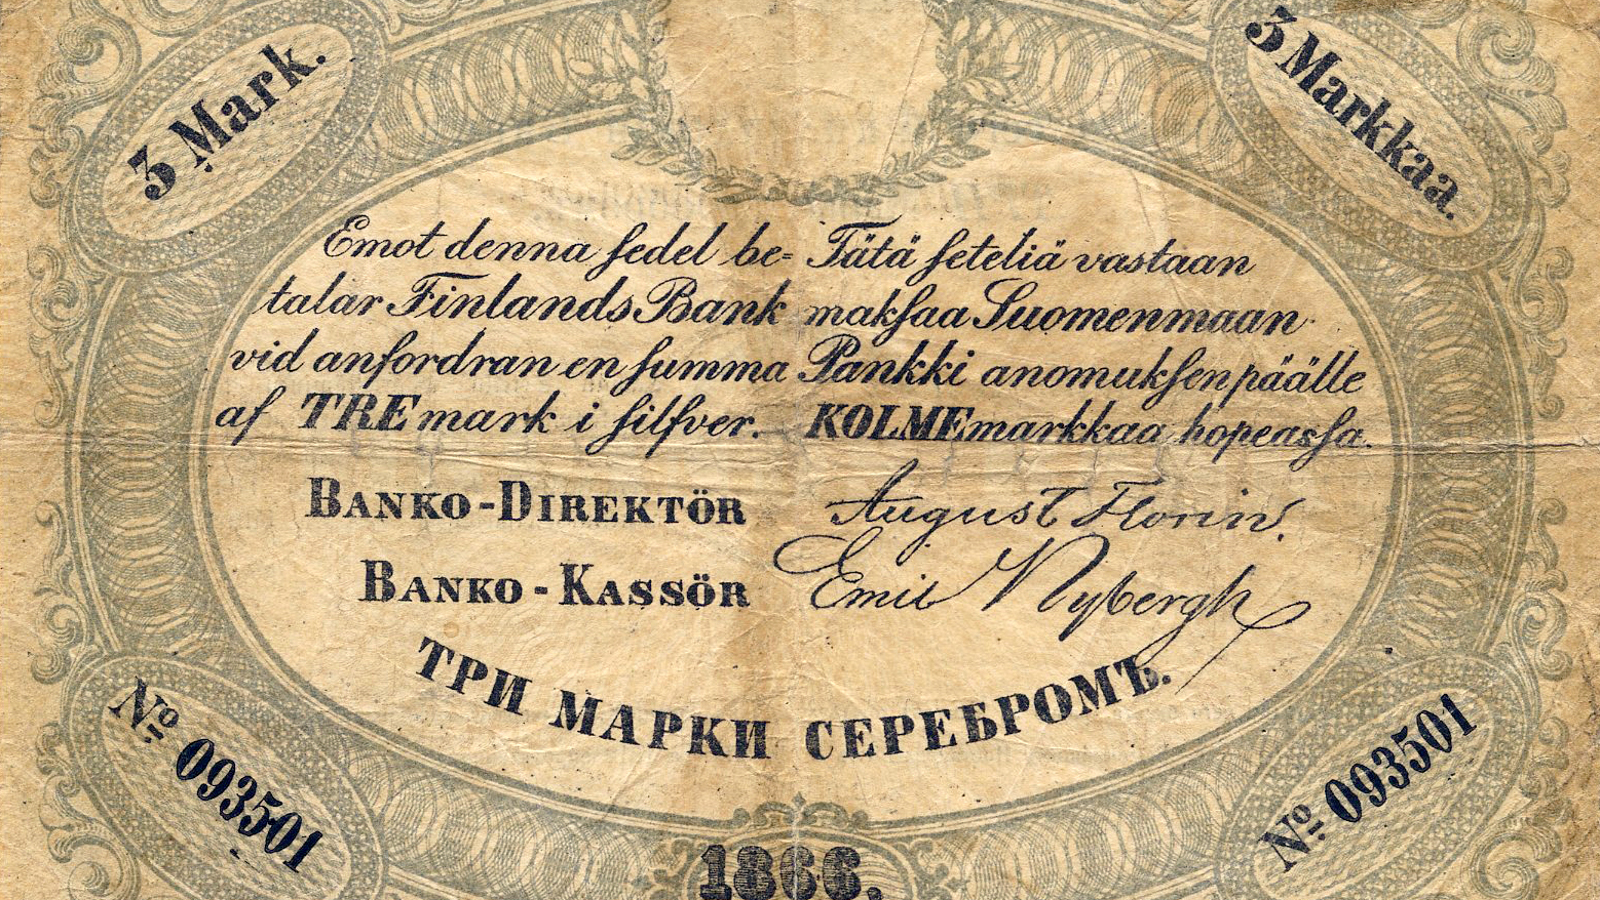 3 Mark.
3 Markkaa.
Emot denna ſedel be-
talar Finlands Bank
vid anfordran en ſumma
af TRE mark i ſilfver.
Tätä ſeteliä vastaan
makſaa Suomenmaan
Pankki anomukſen päälle
KOLME markkaa hopeasſa.
BANKO-DIREKTÖR August Florin.
BANKO-KASSÖR Emil Nybergh
ТРИ МАРКИ СЕРЕБРОМЪ.
No 093501
No 093501
1866.